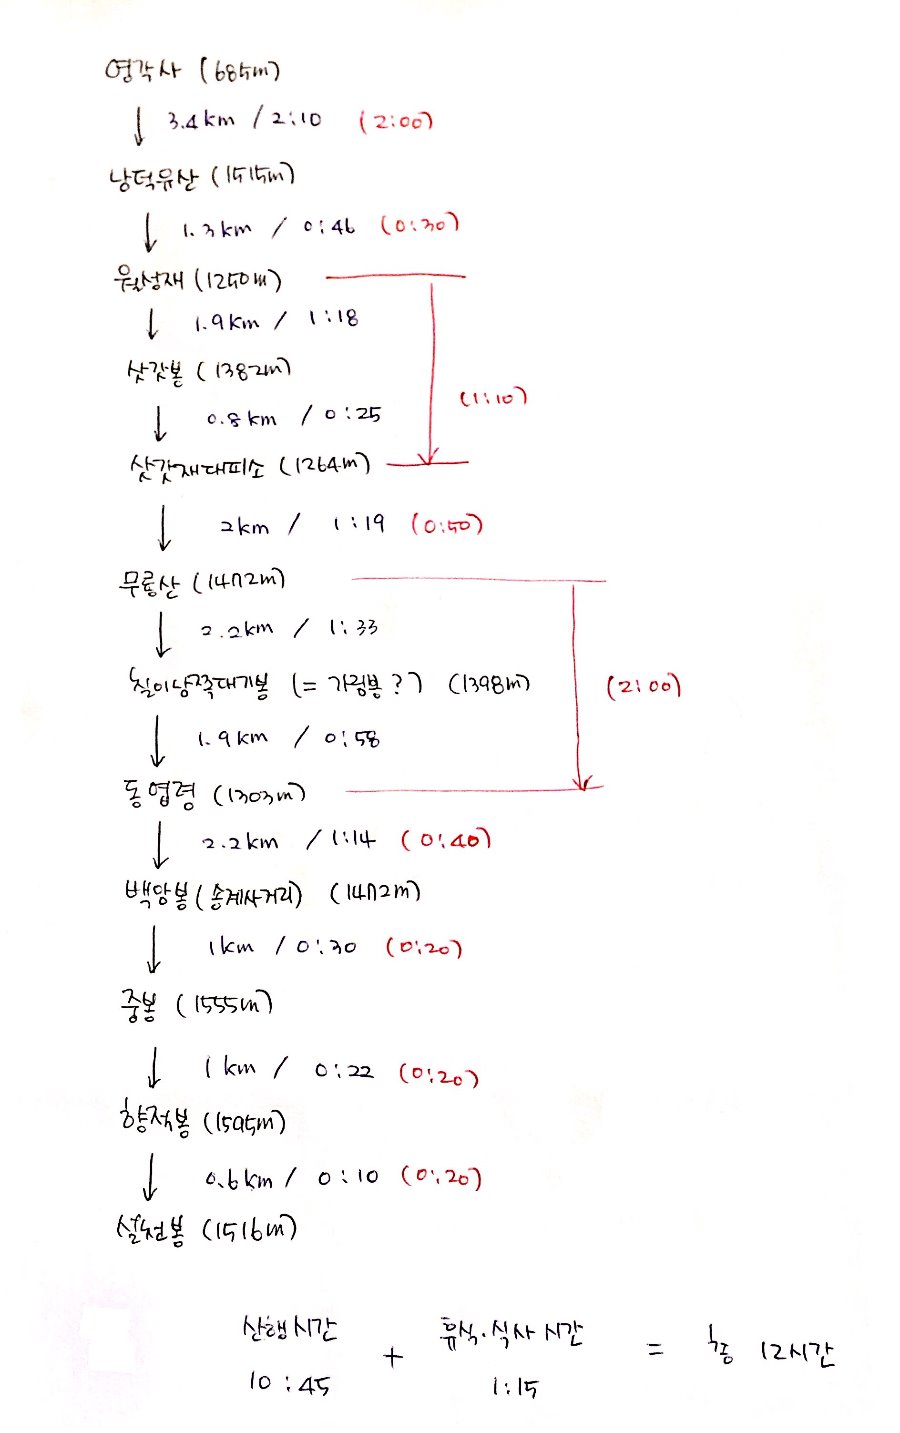 영각사 (685m)
↓ 3.4km / 2:10 (2:00)
남덕유산 (1515m)
↓ 1.3km / 0:46 (0:30)
월성재 (1250m)
↓ 1.9km / 1:18
삿갓봉 (1382m)
(1:10)
↓ 0.8km / 0:25
삿갓재대피소 (1264m)
↓ 2km / 1:19 (0:50)
무룡산 (1472m)
↓ 2.2km / 1:33
칠이남쪽대기봉 (= 가림봉?) (1398m)
(2:00)
↓ 1.9km / 0:58
동엽령 (1303m)
↓ 2.2km / 1:14 (0:40)
백암봉 (송계사거리) (1472m)
↓ 1km / 0:30 (0:20)
중봉 (1555m)
↓ 1km / 0:22 (0:20)
향적봉 (1595m)
↓ 0.6km / 0:10 (0:20)
설천봉 (1516m)
산행시간 + 휴식·식사 시간 = 총 12시간
10:45 1:15